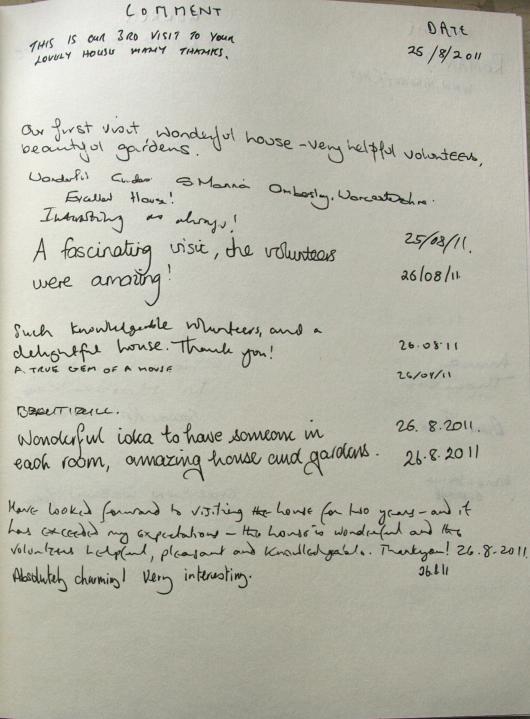 COMMENT DATE
THIS IS OUR 3RD VISIT TO YOUR 25/8/2011
LOVELY HOUSE MANY THANKS.
Our first visit wonderful house - very helpful volunteers,
beautiful gardens.
Wonderful Ombersley, Worcestershire.
Excellent House!
Interesting as always!
A fascinating visit, the volunteers 25/08/11.
were amazing! 26/08/11
Such knowledgeable volunteers, and a
delightful house. Thank you! 26.08.11
A TRUE GEM OF A HOUSE
BEAUTIFULL. 26.8.2011.
Wonderful idea to have someone in
each room, amazing house and gardens. 26.8.2011
Have looked forward to visiting the house for two years - and it
has exceeded my expectations - the house is wonderful and the
volunteers helpful, pleasant and knowledgeable. Thankyou! 26.8.2011.
Absolutely charming! Very interesting.